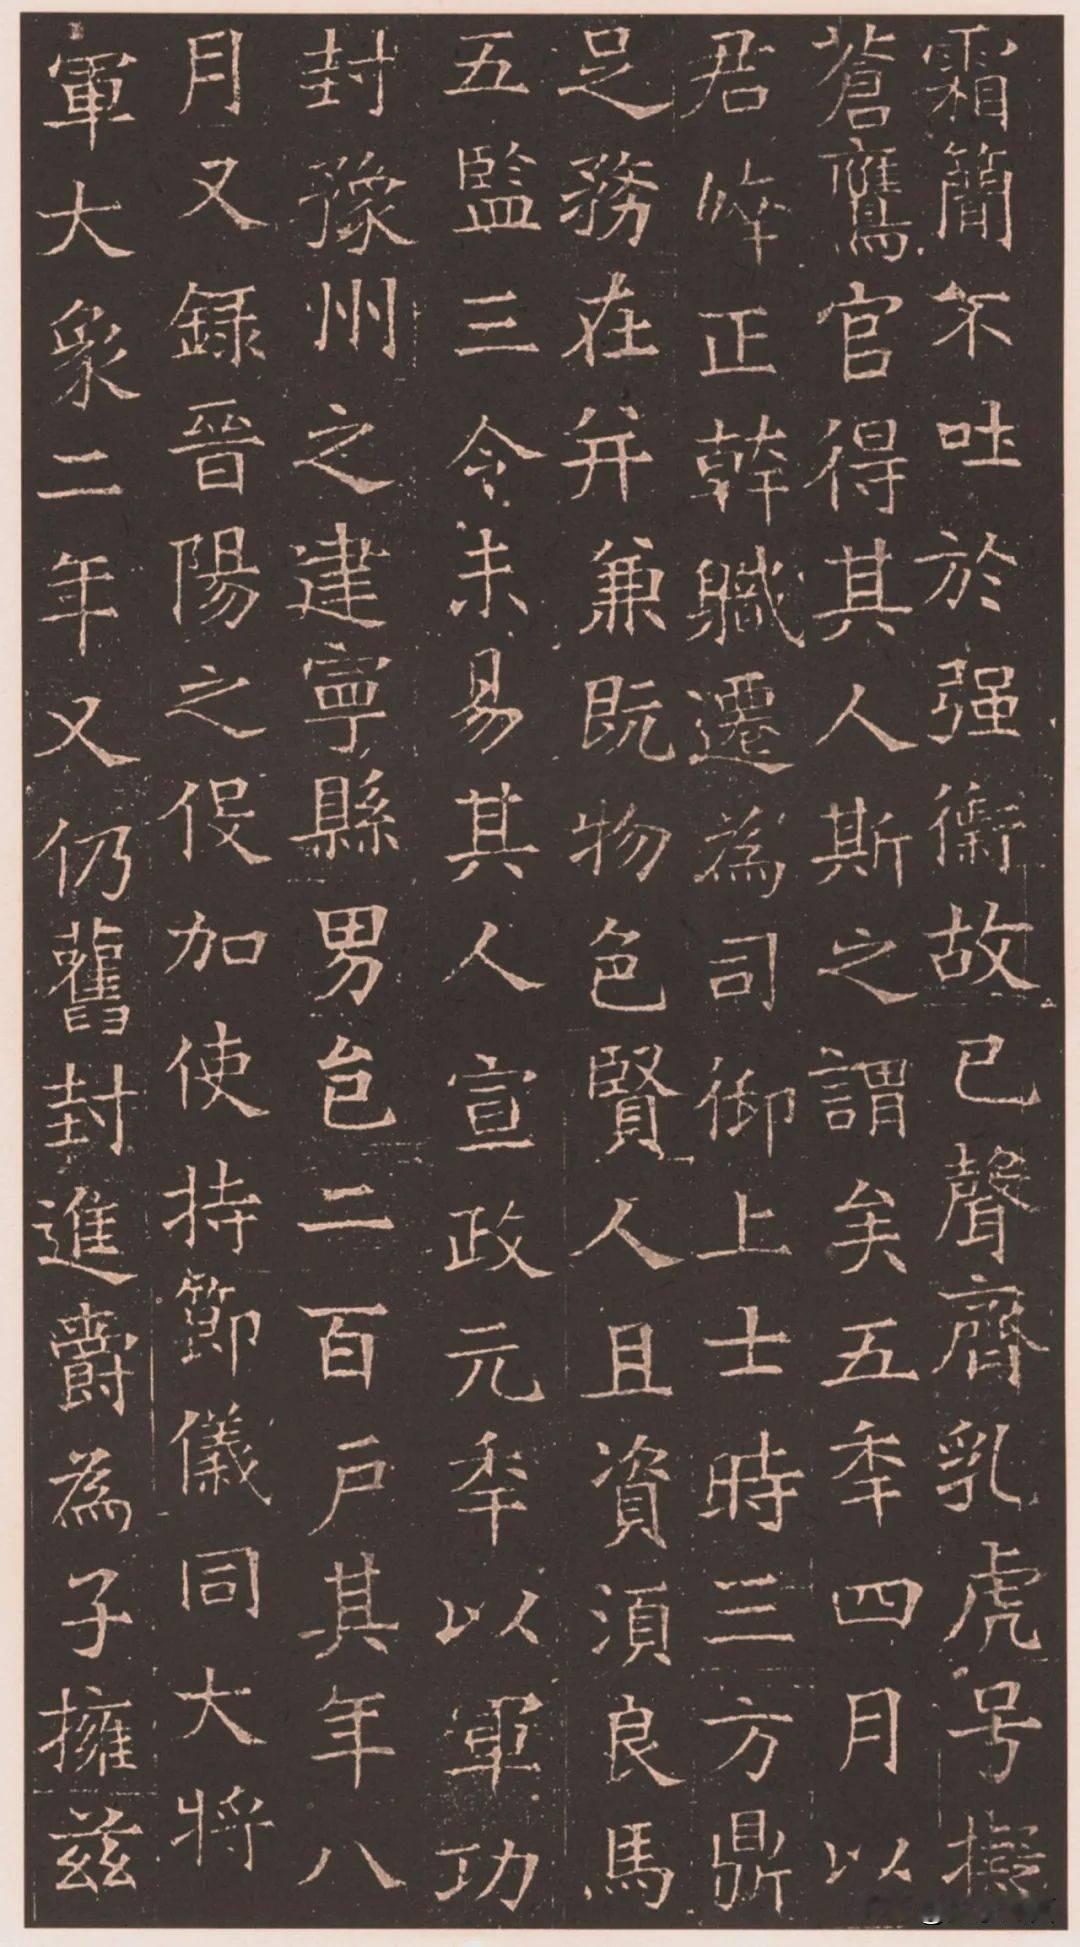 霜簡不吐於强衛故已聲齊乳虎号擬
蒼鷹官得其人斯之謂矣五秊四月以
君啐正幹職遷為司御上士時三方鼎
足務在并兼既物色賢人且資須良馬
五監三令未易其人宣政元秊以軍功
封豫州之建寧縣男邑二百戶其年八
月又錄晉陽之役加使持節儀同大將
軍大象二年又仍舊封進爵為子擁茲